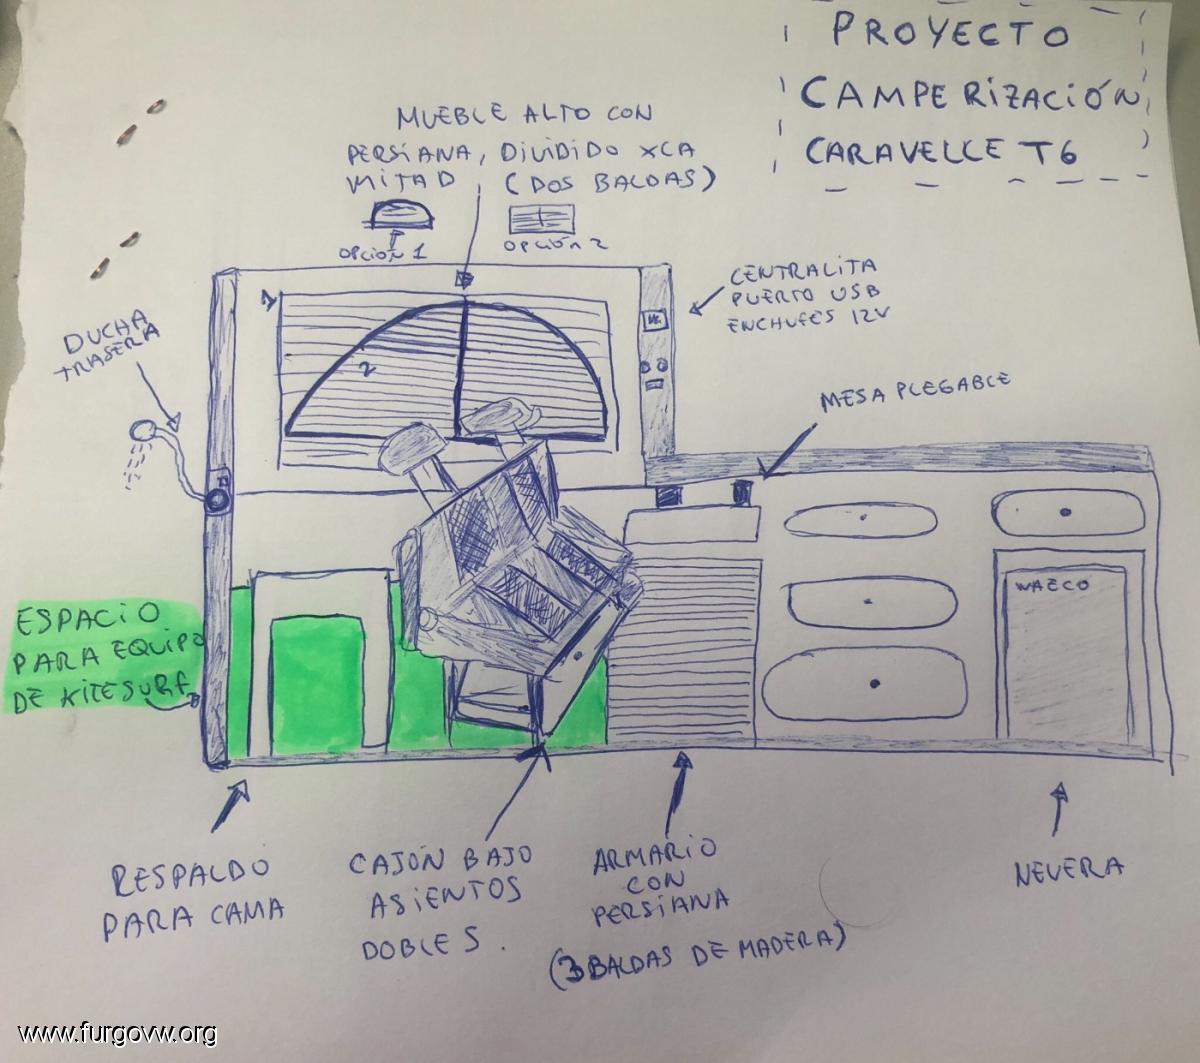 PROYECTO
CAMPERIZACIÓN
CARAVELLE T6
MUEBLE ALTO CON
PERSIANA, DIVIDIDO XCA
MITAD (DOS BALDAS)
OPCIÓN 1
OPCIÓN 2
CENTRALITA
PUERTO USB
ENCHUFES 12V
DUCHA
TRASERA
1
2
MESA PLEGABLE
WAECO
ESPACIO
PARA EQUIPO
DE KITESURF
RESPALDO
PARA CAMA
CAJÓN BAJO
ASIENTOS
DOBLES.
ARMARIO
CON
PERSIANA
(3 BALDAS DE MADERA)
NEVERA
www.furgovw.org